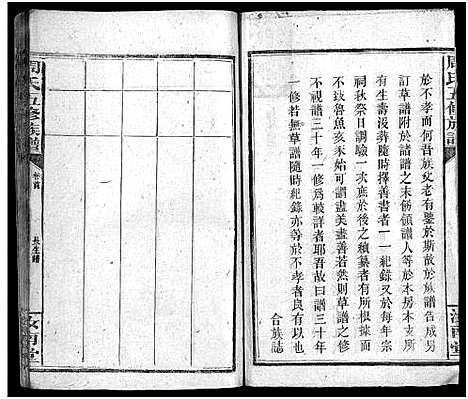 周氏五修族譜
汝南堂
於不孝而何吾族父老有鑒於斯故於族譜告成另
訂草譜附於諸譜之末飭領譜人等於本房本支遇
有生壽沒葬隨時擇善書者一一紀錄又於每年宗
祠秋祭日調驗一次庶於後之續纂者有所根據而
不致魯魚亥豕始可謂盡美盡善若然則草譜可
不視譜二十年一修爲較詳耶吾故曰譜三十年
一修若撫草譜隨時紀錄亦等於不孝不孝
合族誌
周氏五修族譜
卷首
長生譜
汝南堂